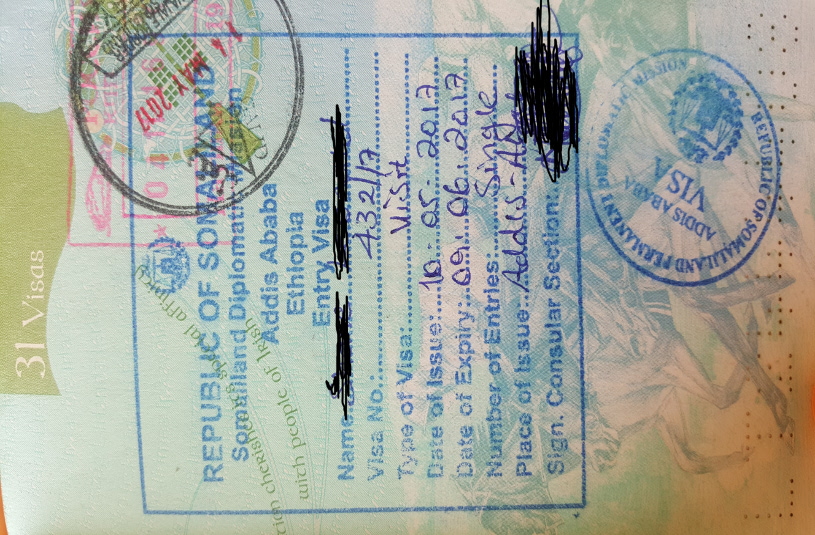 31 Visas
14 MAY 2017
REPUBLIC OF SOMALILAND
Somaliland Diplomatic Mission
Addis Ababa
Ethiopia
Entry Visa
Name:
Visa No.: 432/17
Type of Visa: Visit
Date of Issue: 10-05-2017
Date of Expiry: 09.06.2017
Number of Entries: Single
Place of Issue: Addis-
Sign. Consular Section:
REPUBLIC OF SOMALILAND PERMANENT
ADDIS ABABA
VISA
special affinity
with people of Irish